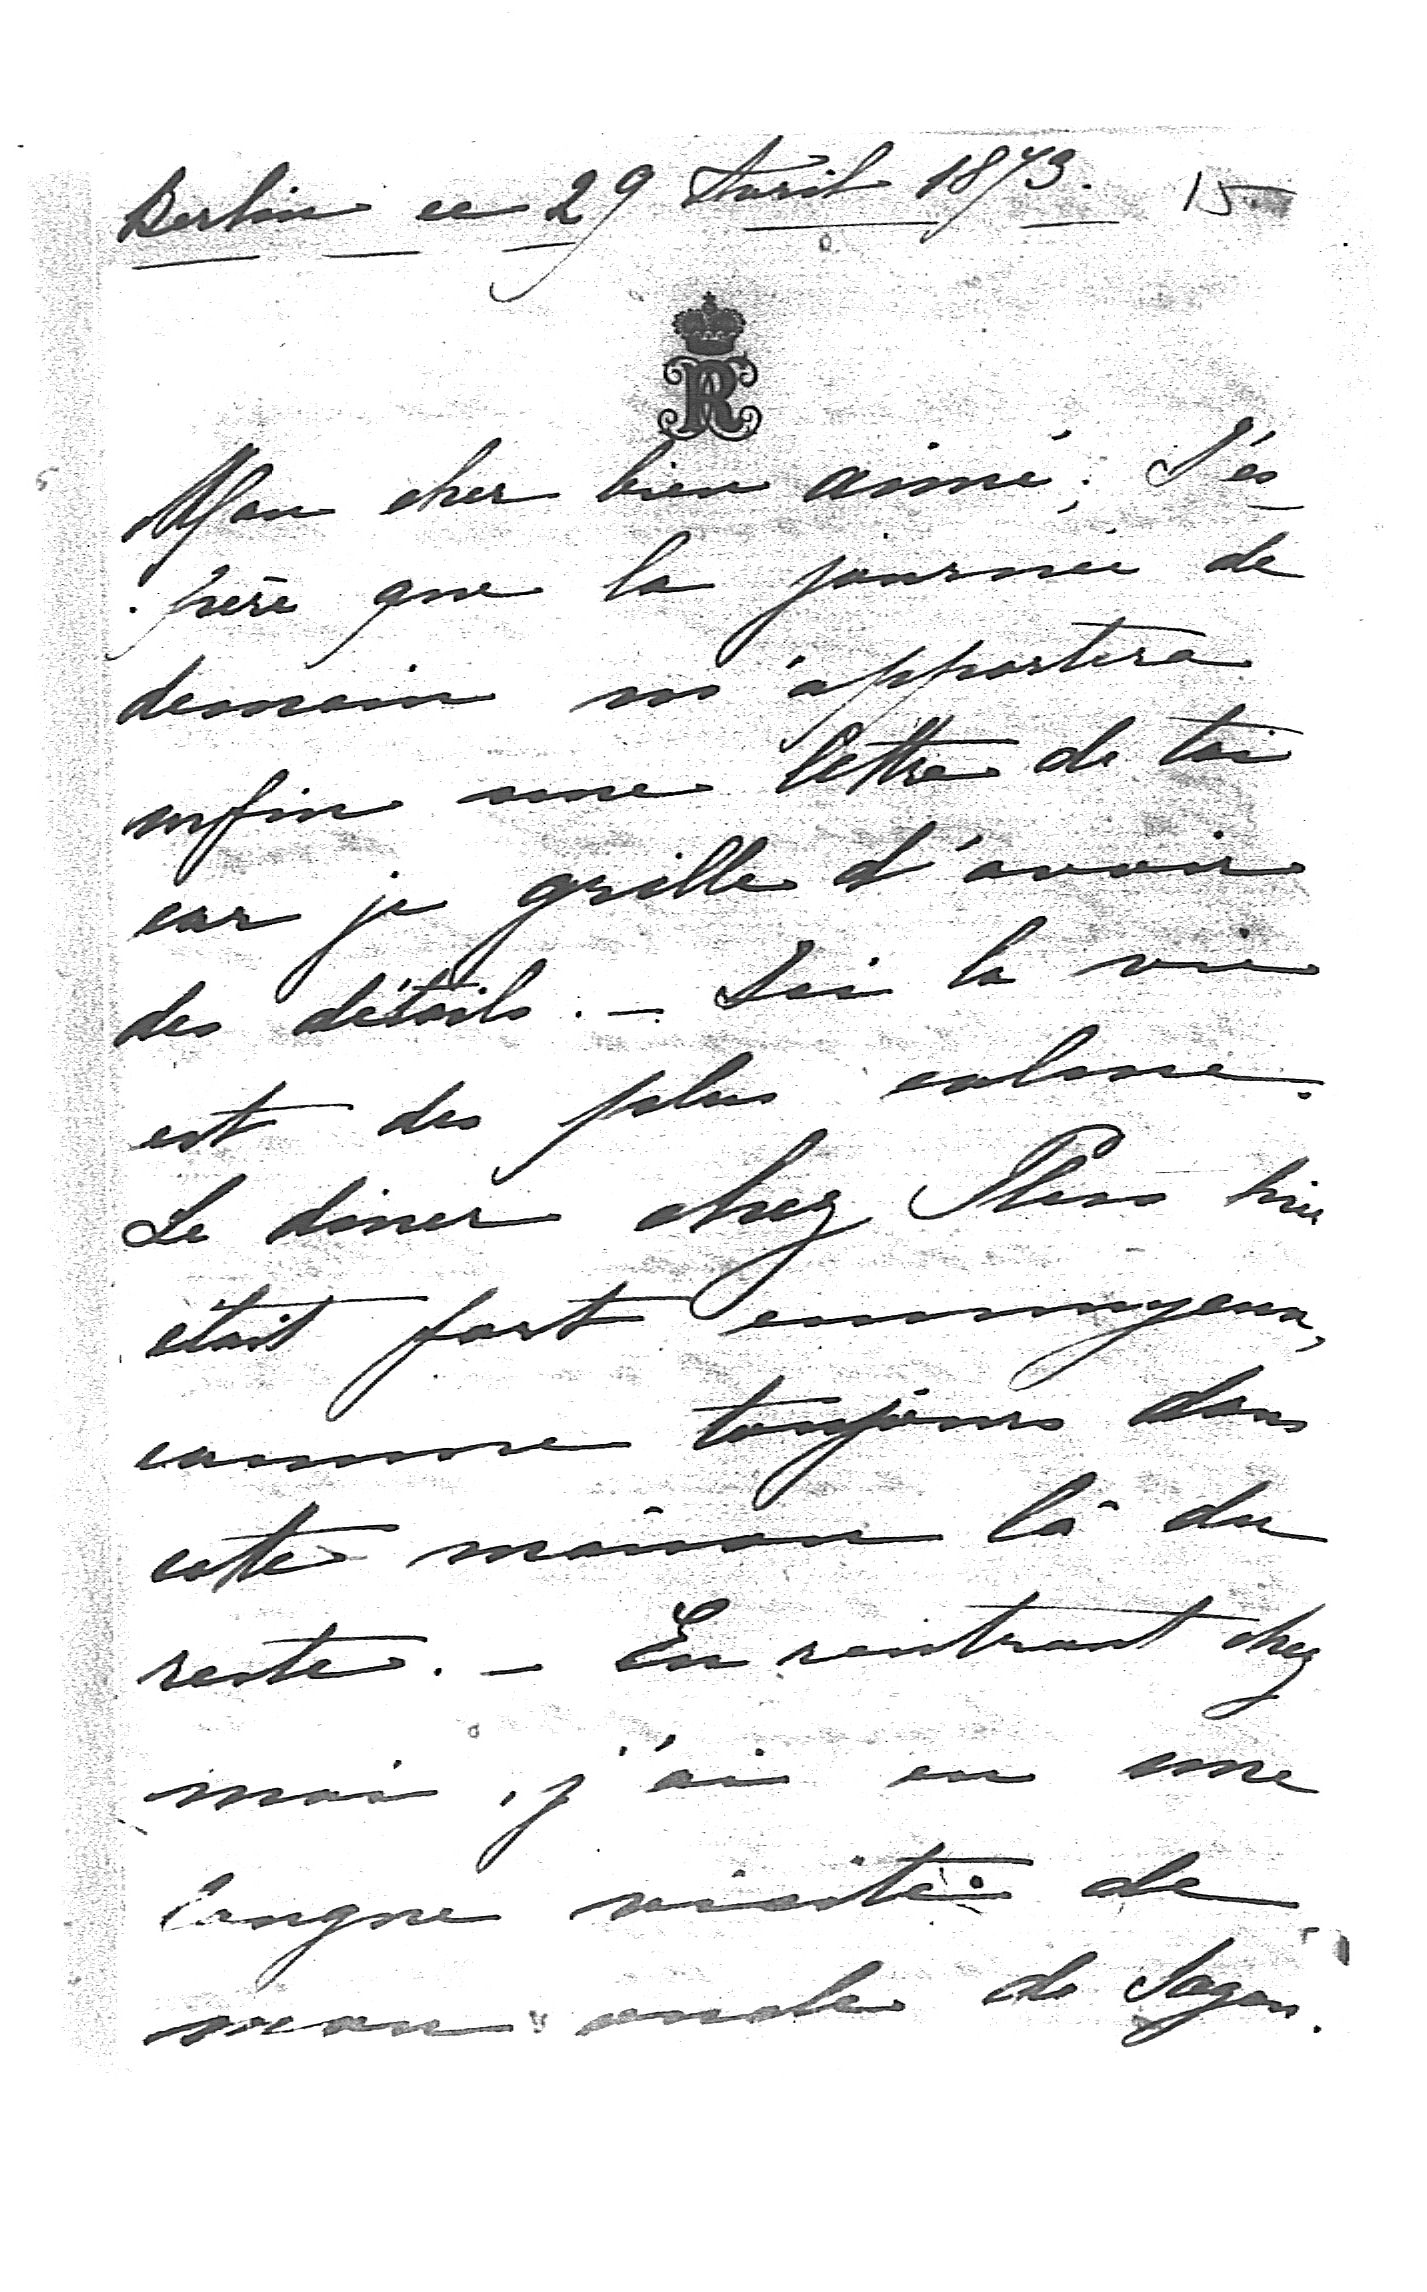 Berlin ce 29 Avril 1873. 15
R
Mon cher bien aimé; J'es
père que la journée de
demain m'apportera
enfin une lettre de toi
car je grille d'avoir
des détails. — Ici la vie
est des plus calme.
Le diner chez Pless hier
était fort ennuyeux,
comme toujours dans
cette maison là du
reste. — En rentrant chez
moi, j'ai eu une
longue visite de
mon oncle de Sagan.